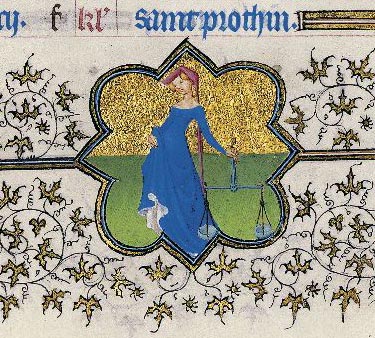 cy. f kl' saint prothin.